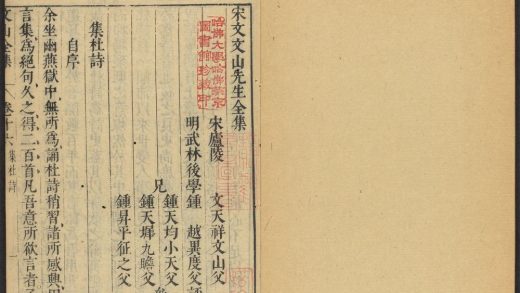 宋文文山先生全集
宋廬陵 文天祥文山父
明武林後學鍾 越異度父評
兄
鍾天均小天父
鍾天墀九瞻父
鍾昇平征之父
集杜詩
自序
余坐幽燕獄中無所為誦杜詩稍習諸所感興因
言集為絕句久之得二百首凡吾意所欲言者子
文山全集 卷十六 集杜詩 一
哈佛大學哈佛燕京圖書館珍藏印